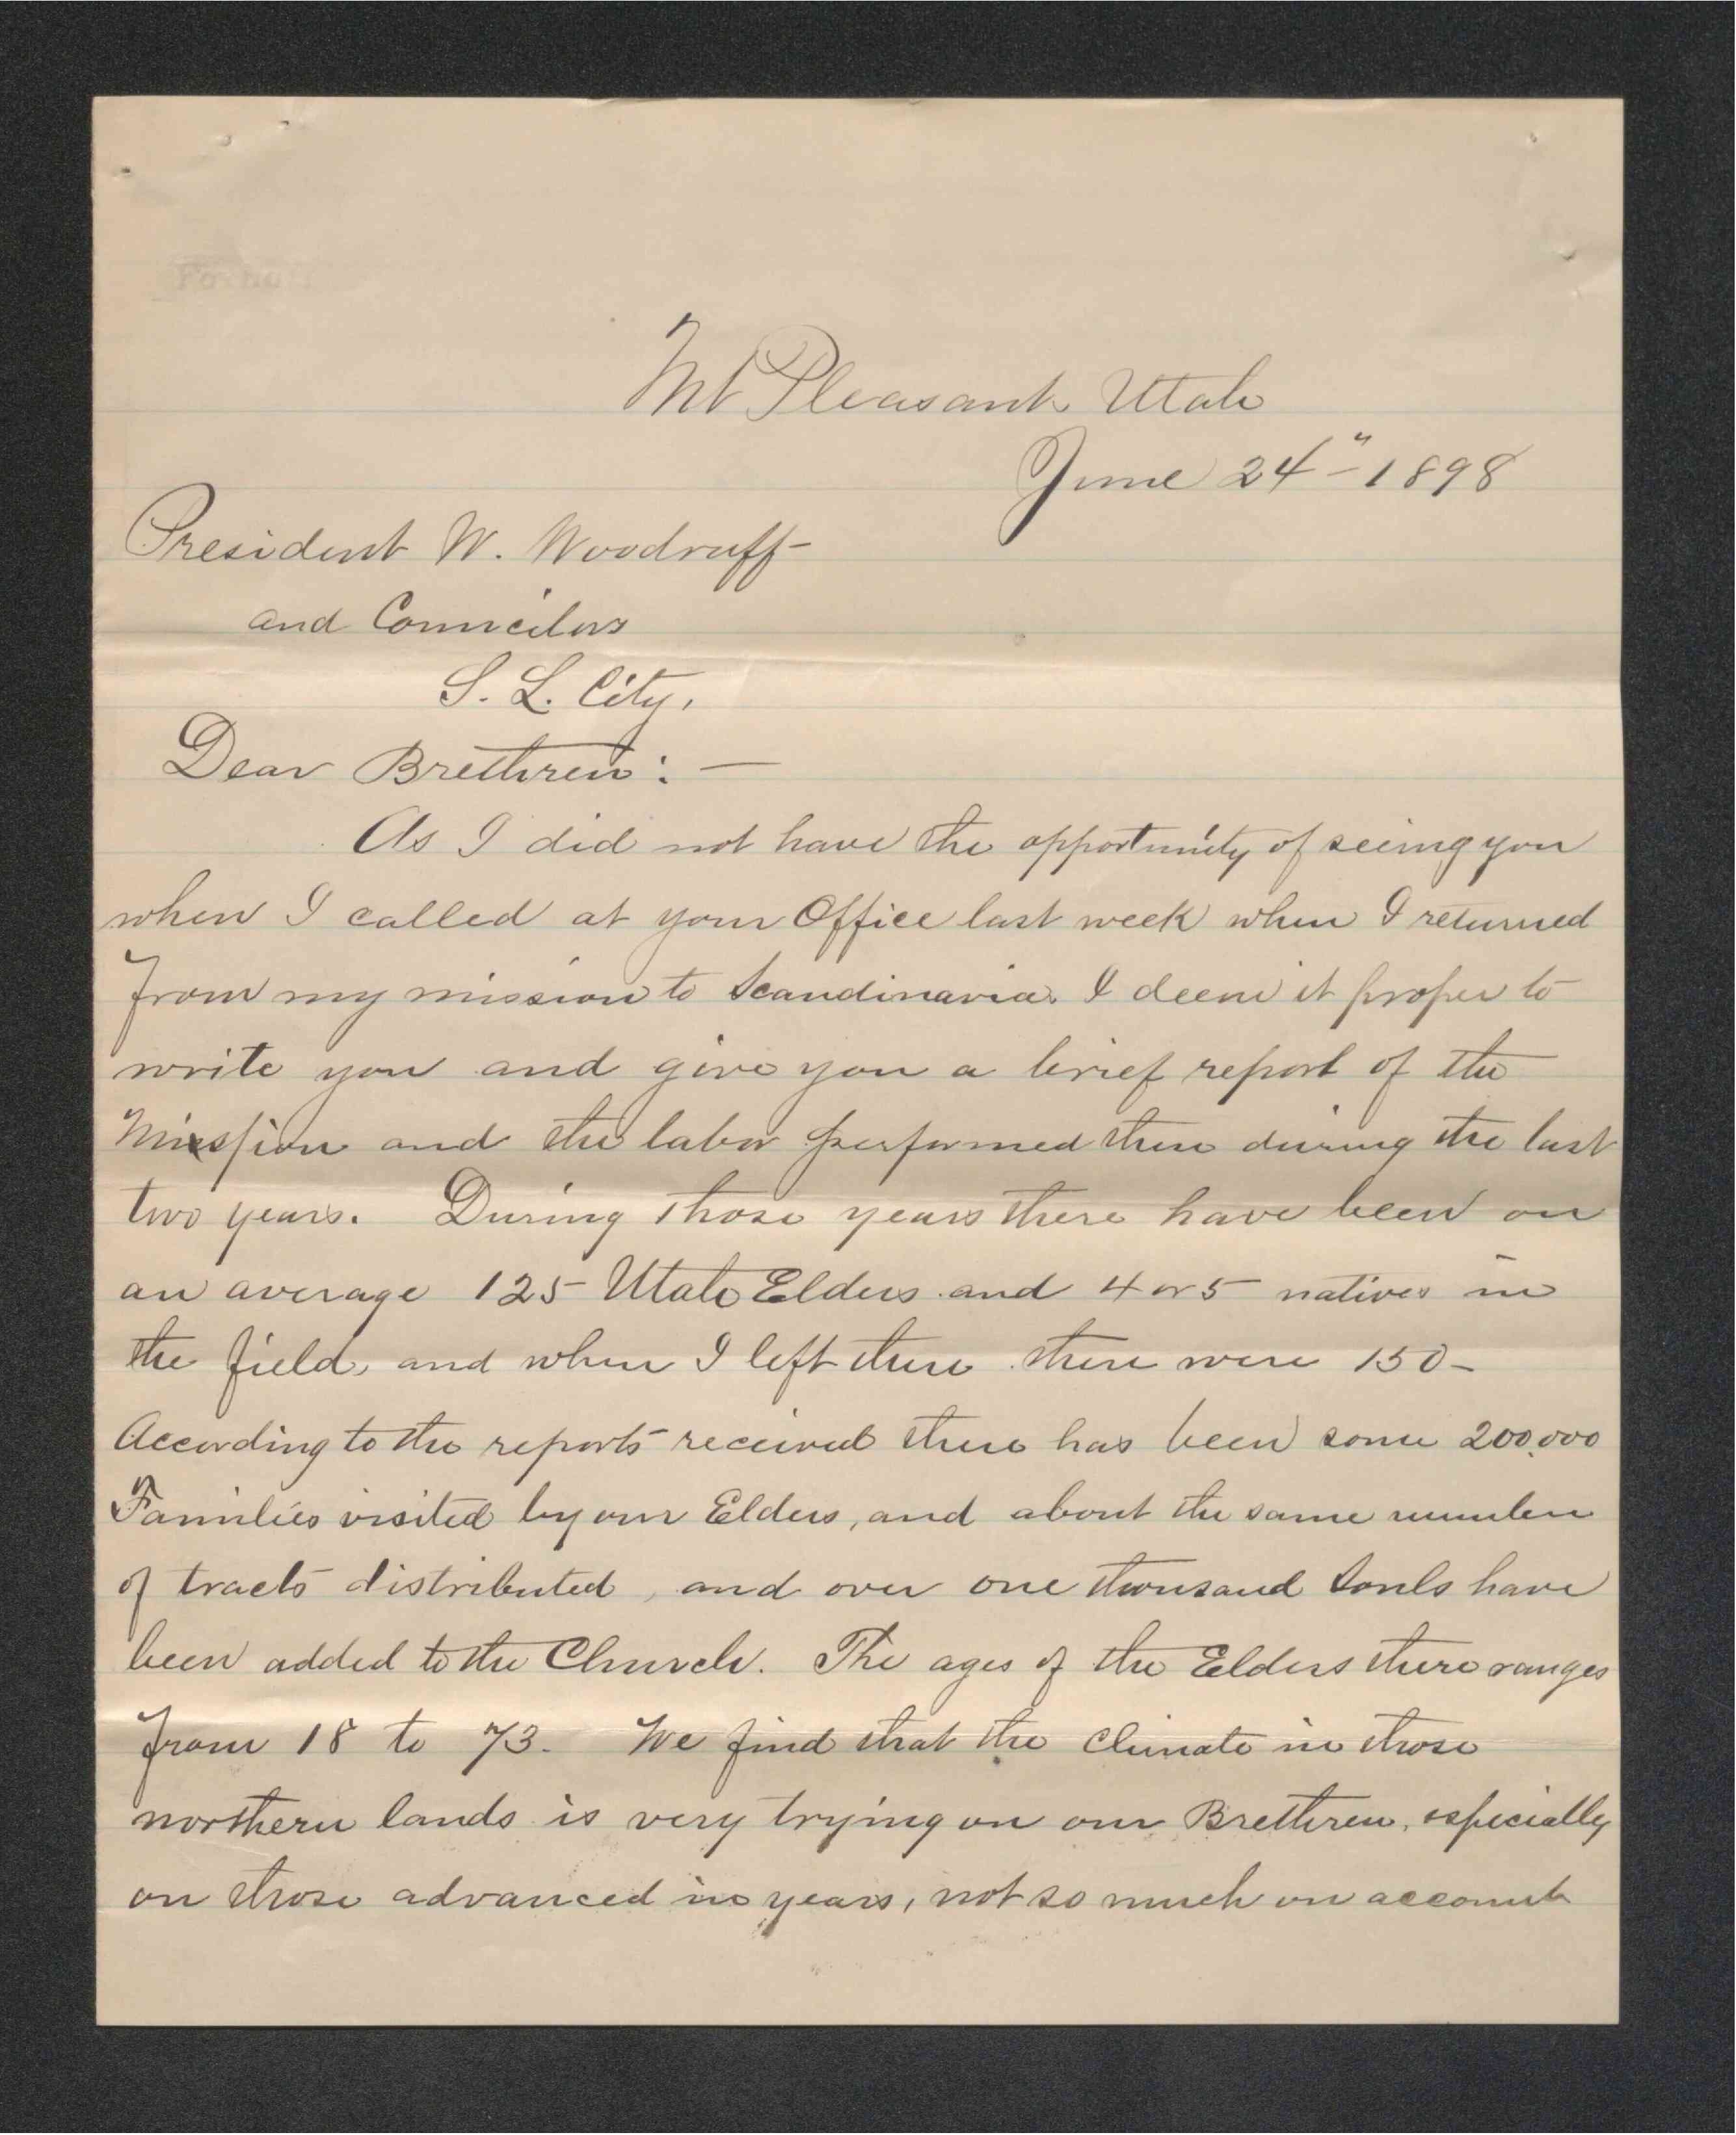 Mt Pleasant Utah
June 24" - 1898
President W. Woodruff
and Councilors
S. L. City,
Dear Brethren: —
As I did not have the opportunity of seeing you
when I called at your Office last week when I returned
from my mission to Scandinavia. I deem it proper to
write you and give you a brief report of the
Mission and the labor performed there during the last
two years. During those years there have been on
an average 125 Utah Elders and 4 or 5 natives in
the field, and when I left there there were 150-
According to the reports received there has been some 200,000
Families visited by our Elders, and about the same number
of tracts distributed, and over one thousand Souls have
been added to the Church. The ages of the Elders there ranges
from 18 to 73. We find that the Climate in those
northern lands is very trying on our Brethren, especially
on those advanced in years, not so much on account